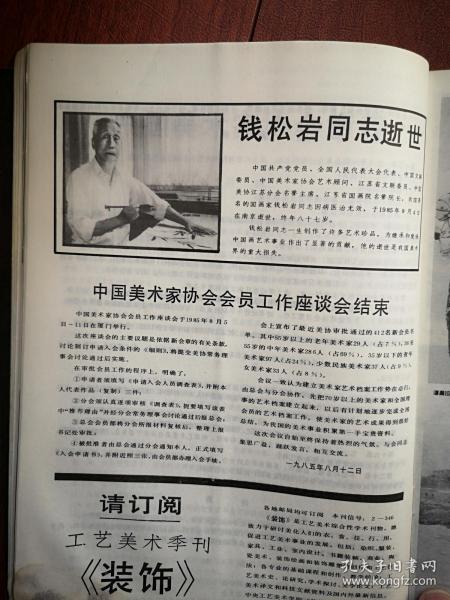 钱松岩同志逝世
中国共产党党员、全国人民代表大会代表、中国文联
委员、中国美术家协会艺术顾问、江苏省文联委员、中国
美协江苏分会名誉主席、江苏省国画院名誉院长，我国著
名的国画家钱松岩同志因病医治无效，于1985年9月4日
在南京逝世，终年八十七岁。
钱松岩同志一生创作了许多艺术珍品，为继承和发扬
中国画艺术事业作出了显著的贡献，他的逝世是我国美术
界的重大损失。
中国美术家协会会员工作座谈会结束
中国美术家协会会员工作座谈会于1985年8月5
日—11日在厦门举行。
这次座谈会的主要议题是依据新会章的有关条款，
讨论制订申请入会条件的《细则》，将提交美协常务理
事会讨论通过后实施。
在审批会员工作的程序上，明确了：
①申请者须填写《申请入会人员调查表》，并附本
人代表作品（复制）三件；
②分会须认真逐项审核《调查表》，按要填写该表
中“推荐理由”并经分会常务理事会讨论通过后报总会；
③总会会员部将分会所报材料复核后，整理上报
书记处审批；
④被批准者由总会通过分会通知本人，正式填写
《入会申请书》，并附近照三张，由会员部办理入会手续。
会上宣布了最近美协审批通过的412名新会员名
单。其中55岁以上的老年美术家29人（占7％），36至
55岁的中年美术家286人（占69％），35岁以下的青年
美术家97人（占24％），少数民族美术家37人（占9％），
女美术家33人（占8％）。
会议一致认为建立美术家艺术档案工作势在必行，
由总会与分会协作，先把70岁以上的美术家和全国理
事的艺术档案建立起来，以后有计划地逐步完成全部
会员的艺术档案工作，使美术家的艺术成果得到很好
总结，为我国的美术事业积累第一手宝贵资料。
这次会议自始至终保持着热烈的气氛，与会同志
集思广益，踊跃发言，相互交流。
一九八五年八月十二日
请订阅
工艺美术季刊
《装饰》
各地邮局均可订阅　本刊代号：2—346
《装饰》是工艺美术综合性学术刊物，她
致力于研讨美化人们的衣、食、住、行、用，
促进工艺美术事业的发展。包括：染织、服装、
家具、工业、室内设计、书籍装帧、商业、陶
孔夫子旧书网